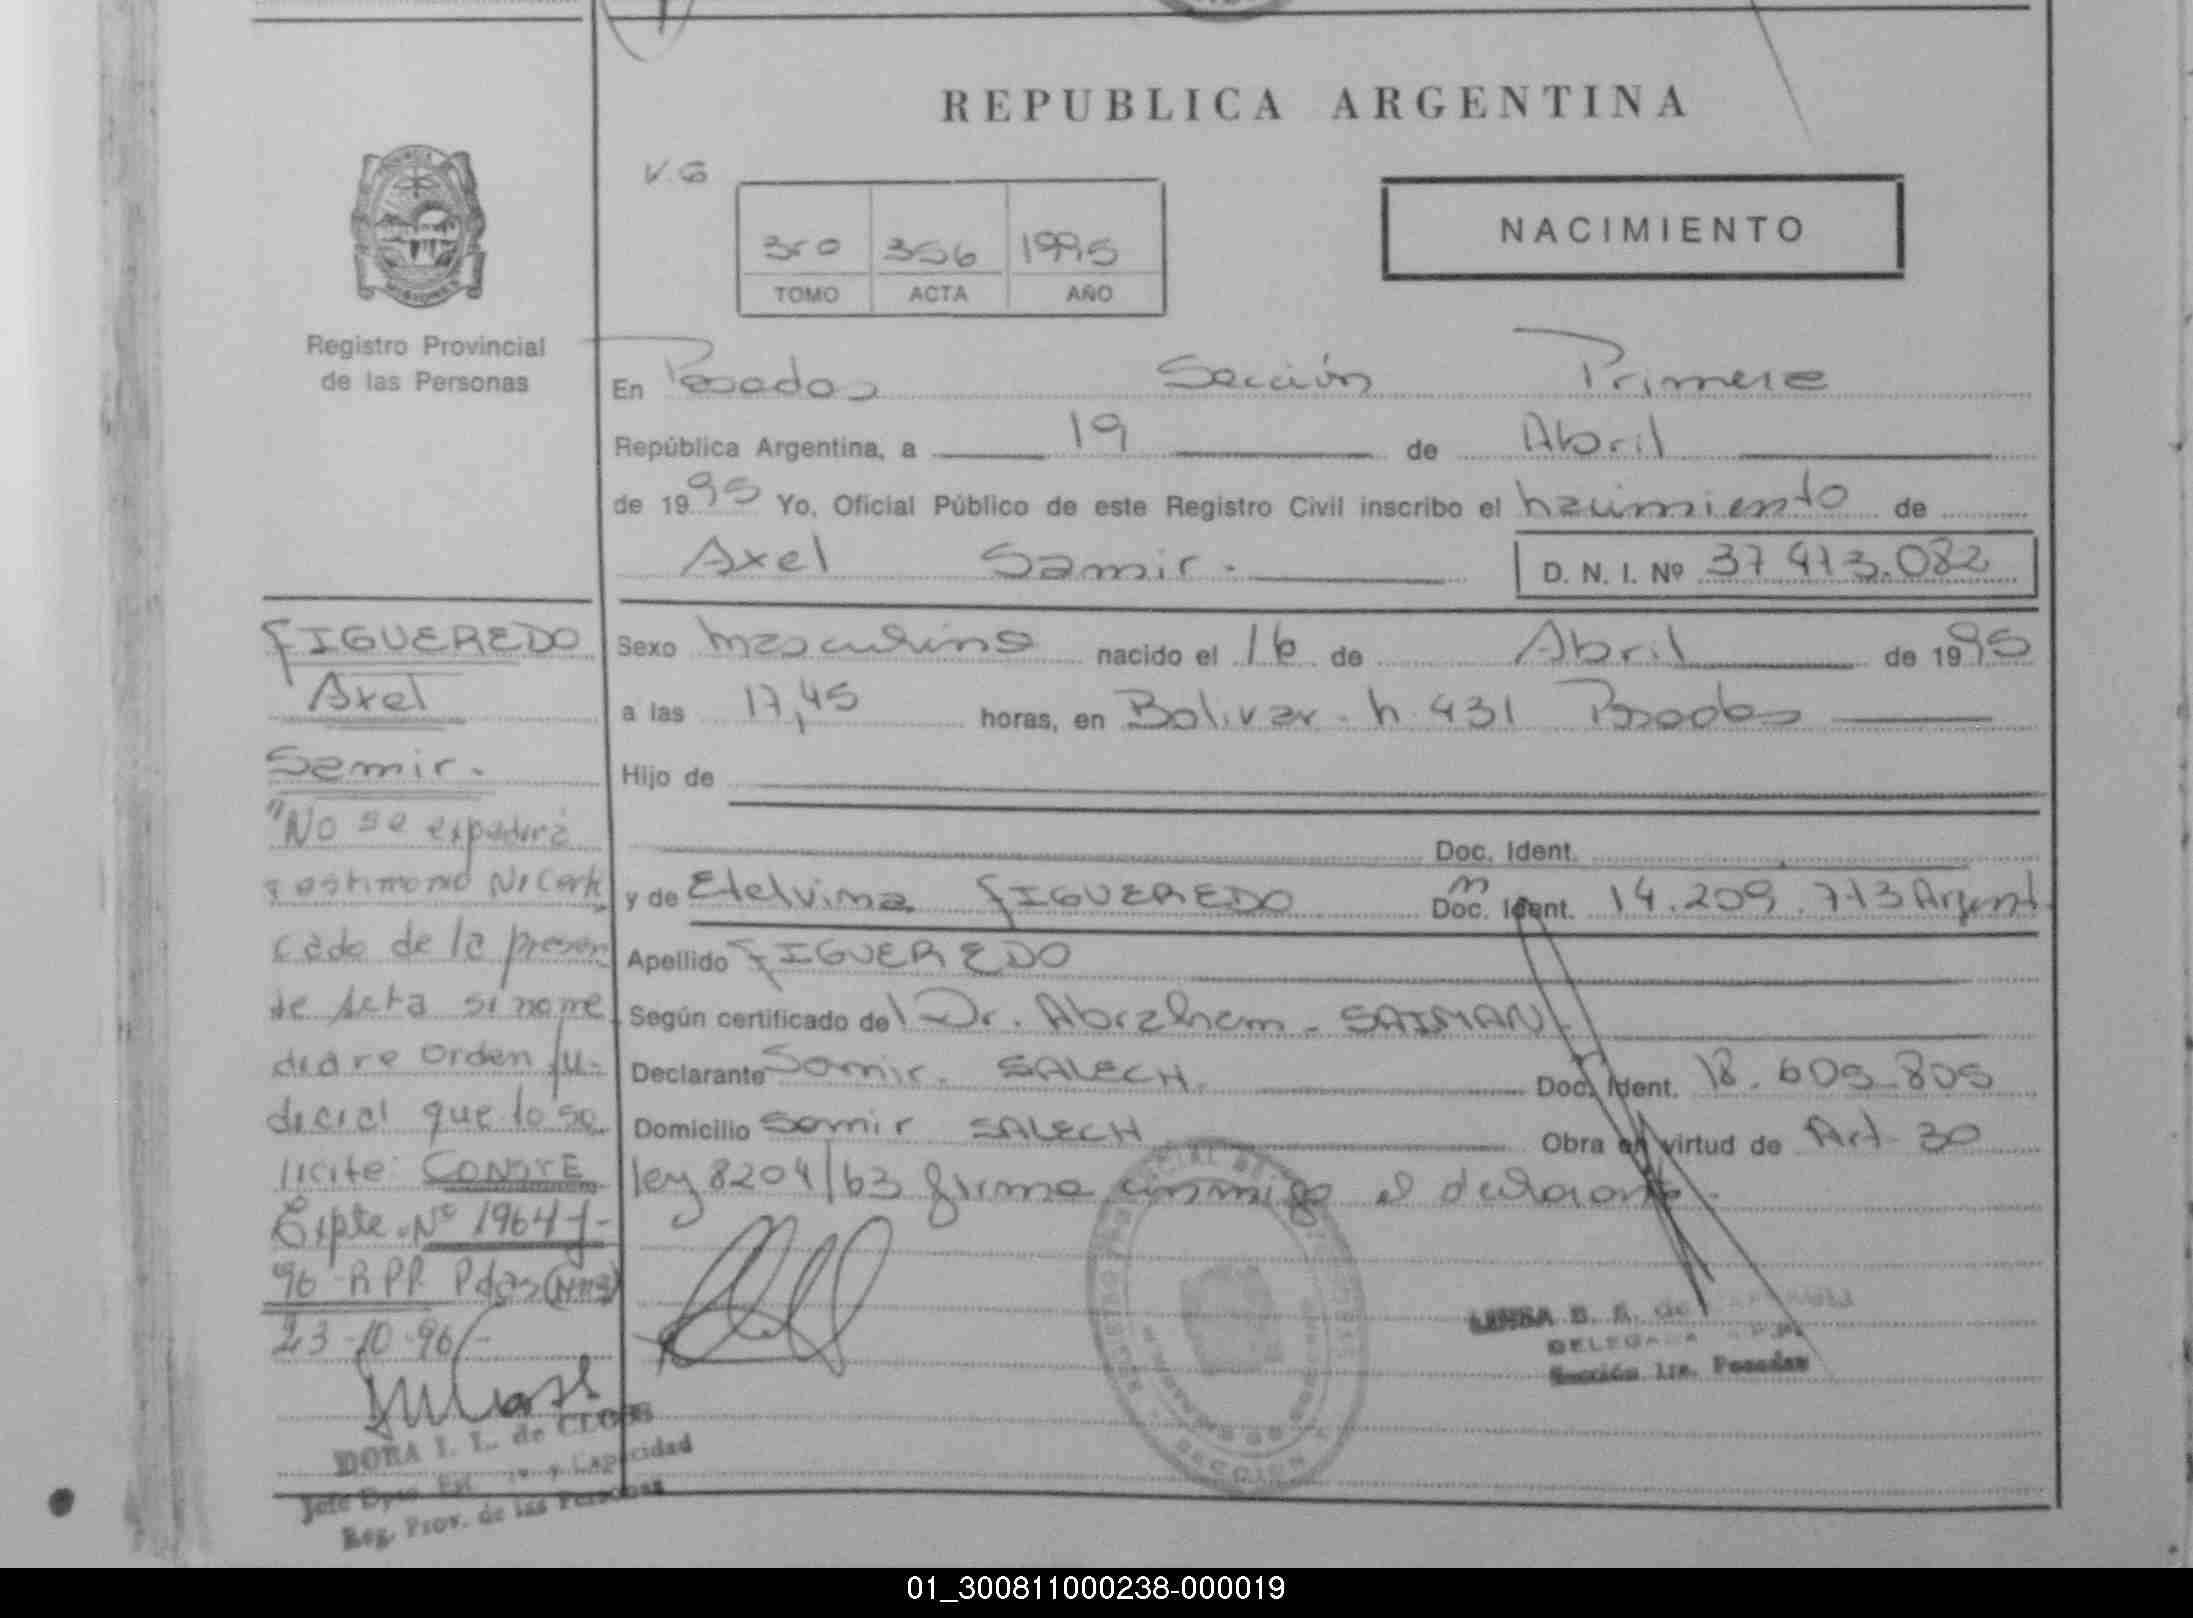 REPUBLICA ARGENTINA
V.G
NACIMIENTO
356 1995
TOMO ACTA AÑO
MISIONES
Registro Provincial
de las Personas
En Posadas Sección Primera
República Argentina, a 19 de Abril
de 1995 Yo, Oficial Público de este Registro Civil inscribo el nacimiento de
Axel Samir.
D. N. I. Nº 37 413.082
FIGUEREDO
Axel
Samir.
"No se expedirá
testimonio Ni Certifi
cado de la presen
te Acta si no me
diare orden ju-
dicial que lo so
licite: CONSTE
Expte. Nº 1964-J-
96 RPP Pdas
23-10-96-
DORA I. L. de
Capacidad
Reg. Prov. de las Personas
Sexo Masculino nacido el 16 de Abril de 1995
a las 17,45 horas, en Bolivar. n. 431 Posadas
Hijo de
Doc. Ident.
y de Etelvina FIGUEREDO Doc. Ident. 14.209.713 Argent.
Apellido FIGUEREDO
Según certificado del Dr. Abraham SAIMAN
Declarante Samir. SALECH. Doc. Ident. 18.605.805
Domicilio Samir SALECH Obra en virtud de Art 30
ley 8204/63 firma conmigo el declarante.
DELEGADA
Sección 1ra. Posadas
01_300811000238-000019